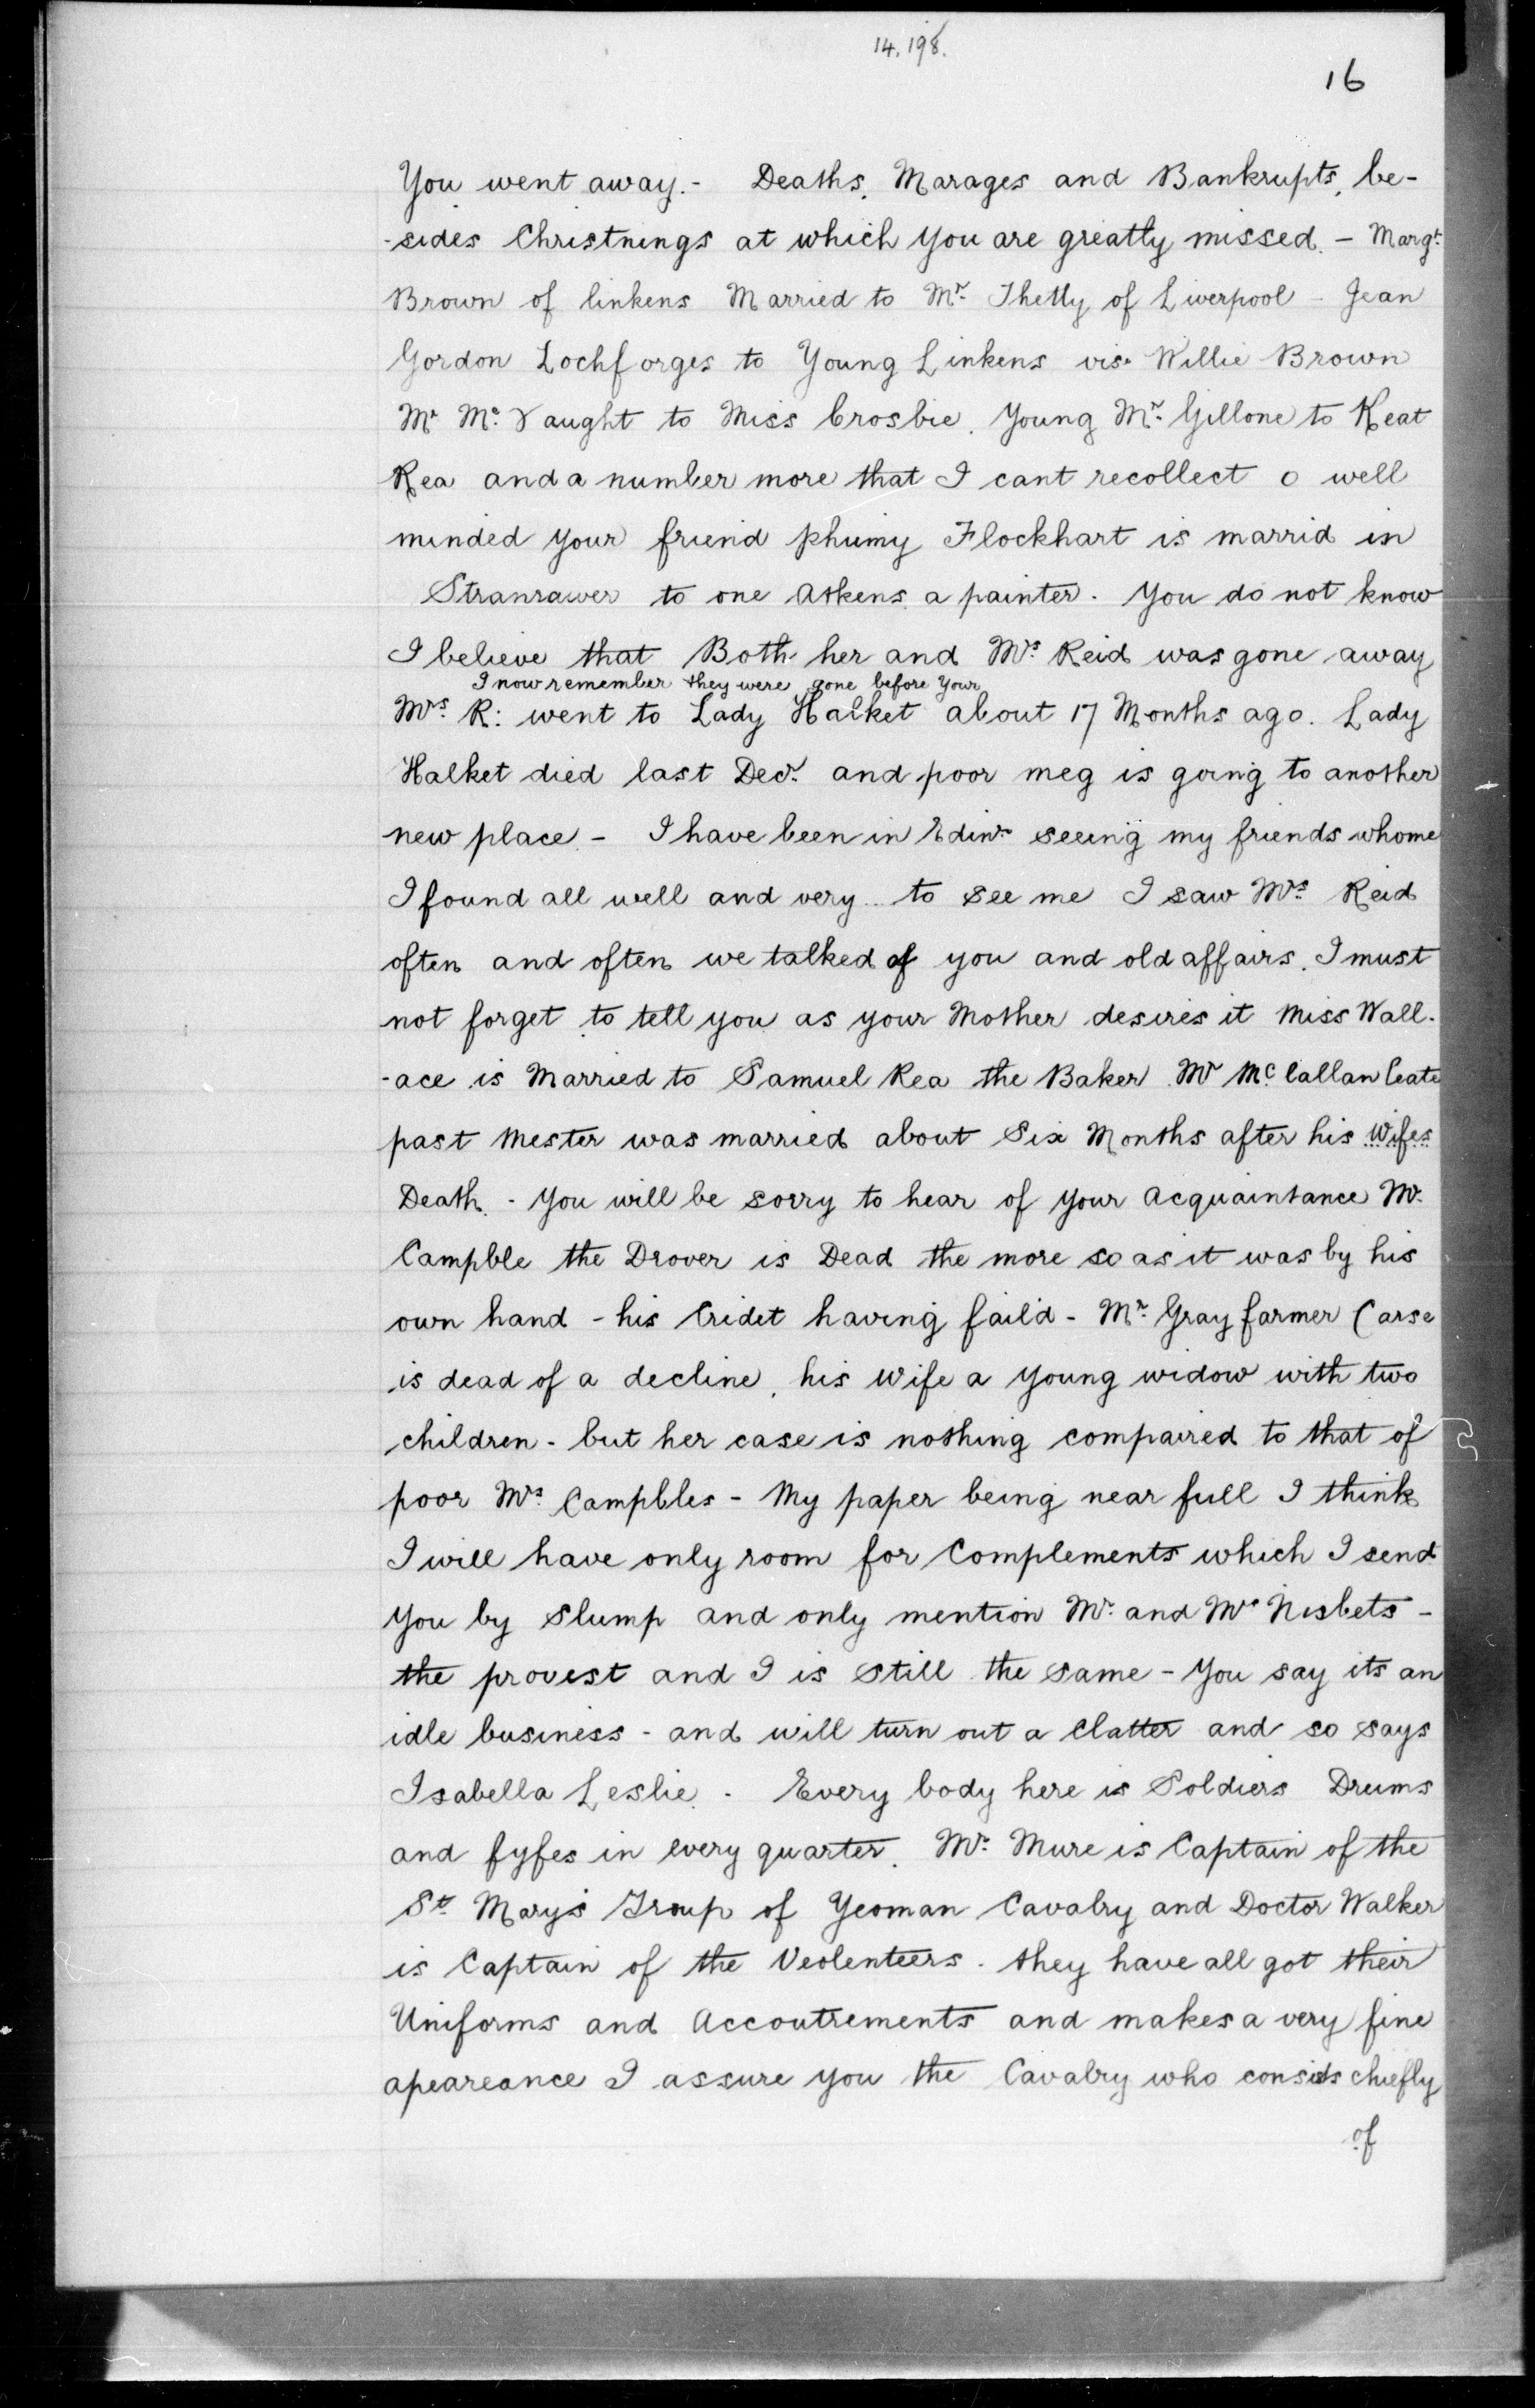 14.198.
16
You went away.- Deaths, Marages and Bankrupts, be-
-sides Christnings at which you are greatly missed. - Margt.
Brown of linkens Married to Mr. Thetty of Liverpool - Jean
Gordon Lochforges to Young Linkens vis. Willie Brown
Mr Mc. Vaught to Miss Crosbie. Young Mr. Gillone to Keat
Rea and a number more that I cant recollect o well
minded your friend phumy Flockhart is marrid in
Stranrawer to one Askens a painter. You do not know
I believe that Both her and Mrs Reid was gone away
I now remember they were gone before Your
Mrs. R: went to Lady Halket about 17 Months ago. Lady
Halket died last Decr. and poor meg is going to another
new place. - I have been in Edinr. seeing my friends whome
I found all well and very ... to see me I saw Mrs. Reid
often and often we talked of you and old affairs. I must
not forget to tell you as your Mother desires it Miss Wall-
-ace is Married to Samuel Rea the Baker. Mr Mc. Callan leate
past Mester was married about Six Months after his Wifes
Death. - You will be sorry to hear of your Acquaintance Mr.
Campble the Drover is Dead the more so as it was by his
own hand - his Cridet having faild - Mr. Gray farmer Carse
is dead of a decline, his wife a young widow with two
children - but her case is nothing compaired to that of
poor Mrs. Campbles - My paper being near full I think
I will have only room for Complements which I send
you by slump and only mention Mr. and Mrs Nisbets -
the provest and I is still the same - You say its an
idle business - and will turn out a Clatter and so says
Isabella Leslie. - Every body here is Soldiers Drums
and fyfes in every quarter. Mr. Mure is Captain of the
St. Mary's Troup of Yeoman Cavalry and Doctor Walker
is Captain of the Veolenteers. they have all got their
Uniforms and Accoutrements and makes a very fine
apeareance I assure you the Cavalry who consists chiefly
of